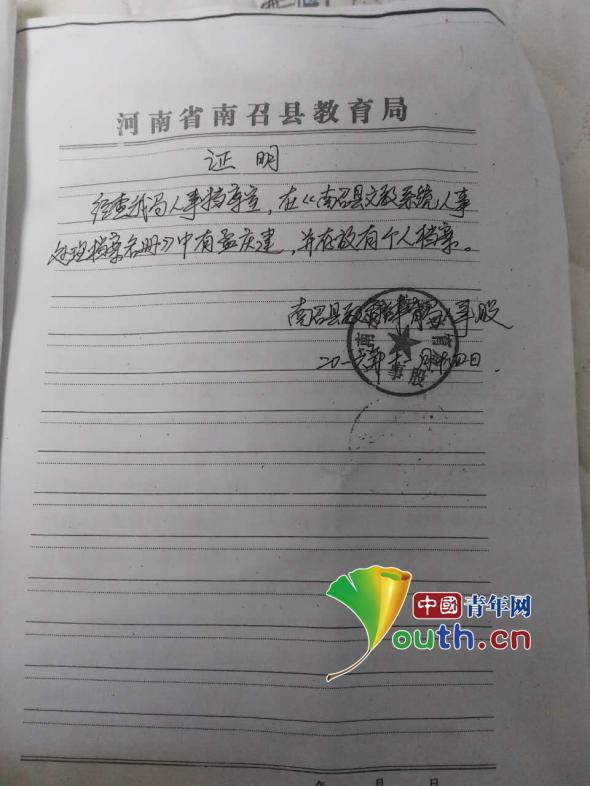 河南省南召县教育局
证明
经查我局人事档案室，在《南召县文教系统人事
处理档案名册》中有孟庆建，并存放有个人档案。
南召县教育 人事股
南 育
事股
二0一六年十 月 日
年 月 日
中國青年网
Youth.cn